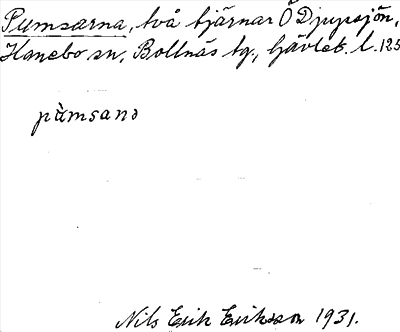 Pumsarna, två tjärnar Ö Djupsjön,
Hanebo sn, Bollnäs tg., Gävleb. l. 125
pùmsanə
Nils Erik Erikson 1931.